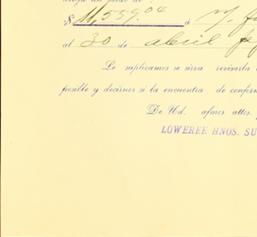 $ 11,559.04 á
al 30 de abril
Le suplicamos se sirva revisarla
posible y decirnos si la encuentra de confor
De Ud. afmos. attos.
LOWEREE HNOS. SU